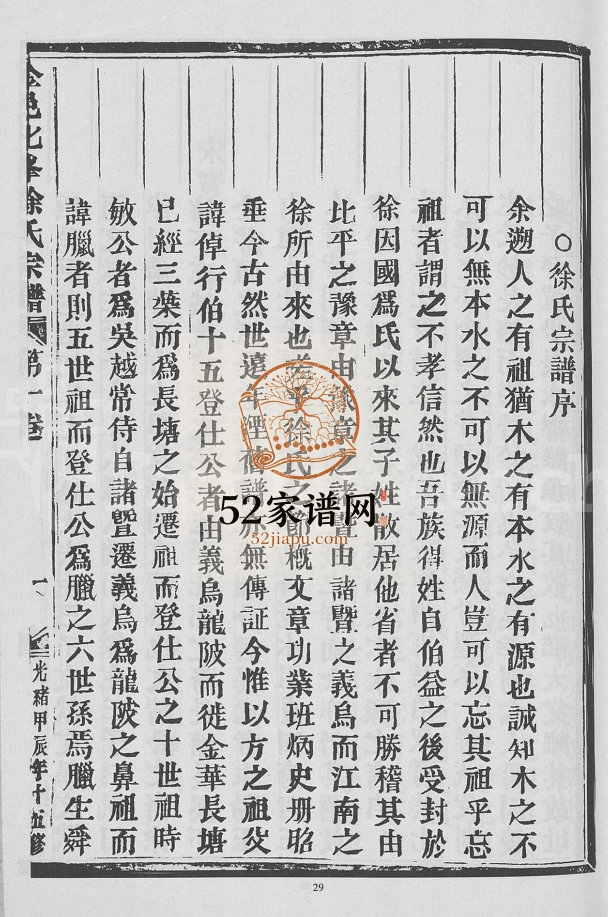 ○徐氏宗譜序
余遡人之有祖猶木之有本水之有源也誠知木之不
可以無本水之不可以無源而人豈可以忘其祖乎忘
祖者謂之不孝信然也吾族得姓自伯益之後受封於
徐因國爲氏以來其子姓散居他省者不可勝稽其由
比平之豫章由豫章之諸暨由諸暨之義烏而江南之
徐所由來也嗟乎徐氏之節概文章功業班炳史册昭
垂今古然世遠年湮舊譜亦無傳証今惟以方之祖父
諱倬行伯十五登仕公者由義烏龍陂而徙金華長塘
已經三葉而爲長塘之始遷祖而登仕公之十世祖時
敏公者爲吳越常侍自諸暨遷義烏爲龍陂之鼻祖而
諱臘者則五世祖而登仕公爲臘之六世孫焉臘生舜
金邑北峯徐氏宗譜
第一卷
一
光緒甲辰年十五修
52家谱网
52jiapu.com
29